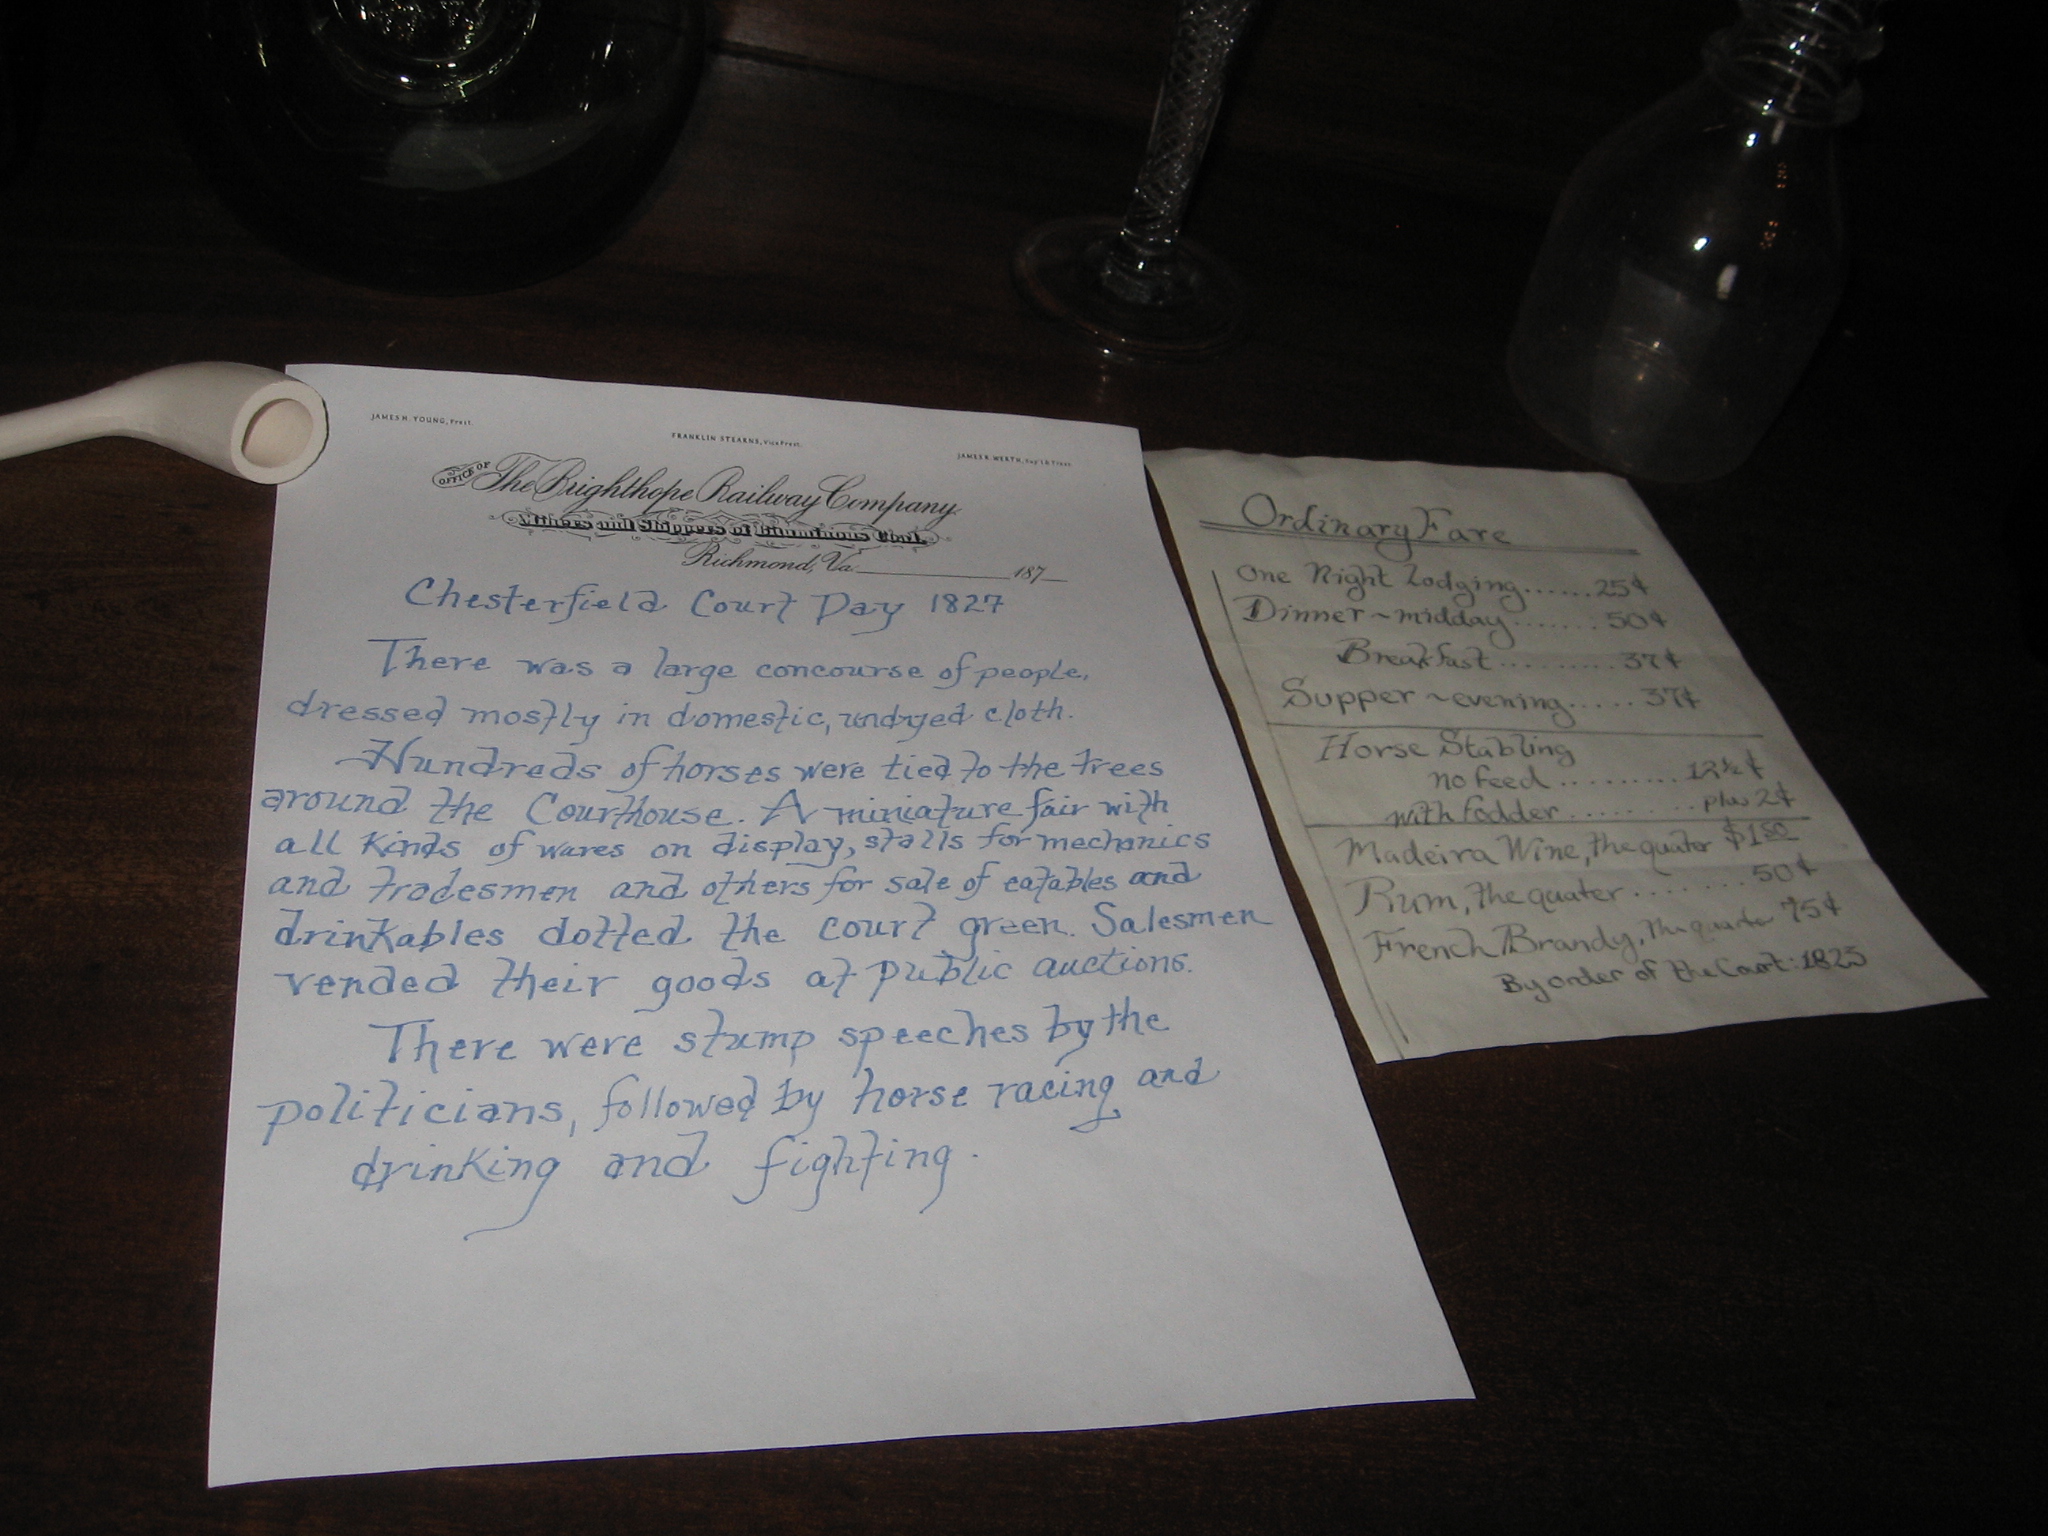 JAMES H. YOUNG, Prest.
FRANKLIN STEARNS, Vice Prest.
JAMES R. WERTH, Sey'l & Treas.
OFFICE OF
The Brighthope Railway Company
Miners and Shippers of Bituminous Coal,
Richmond, Va. 187
Chesterfield Court Day 1827
There was a large concourse of people,
dressed mostly in domestic, undyed cloth.
Hundreds of horses were tied to the trees
around the Courthouse. A miniature fair with
all kinds of wares on display, stalls for mechanics
and tradesmen and others for sale of eatables and
drinkables dotted the court green. Salesmen
vended their goods at public auctions.
There were stump speeches by the
politicians, followed by horse racing and
drinking and fighting.
Ordinary Fare
One Night Lodging.......25¢
Dinner~midday........50¢
Breakfast.........37¢
Supper~evening.....37¢
Horse Stabling
no feed.........12½¢
with fodder........plus 2¢
Madeira Wine, the quater $1.50
Rum, the quater.......50¢
French Brandy, the quarter 75¢
By order of the Court: 1825